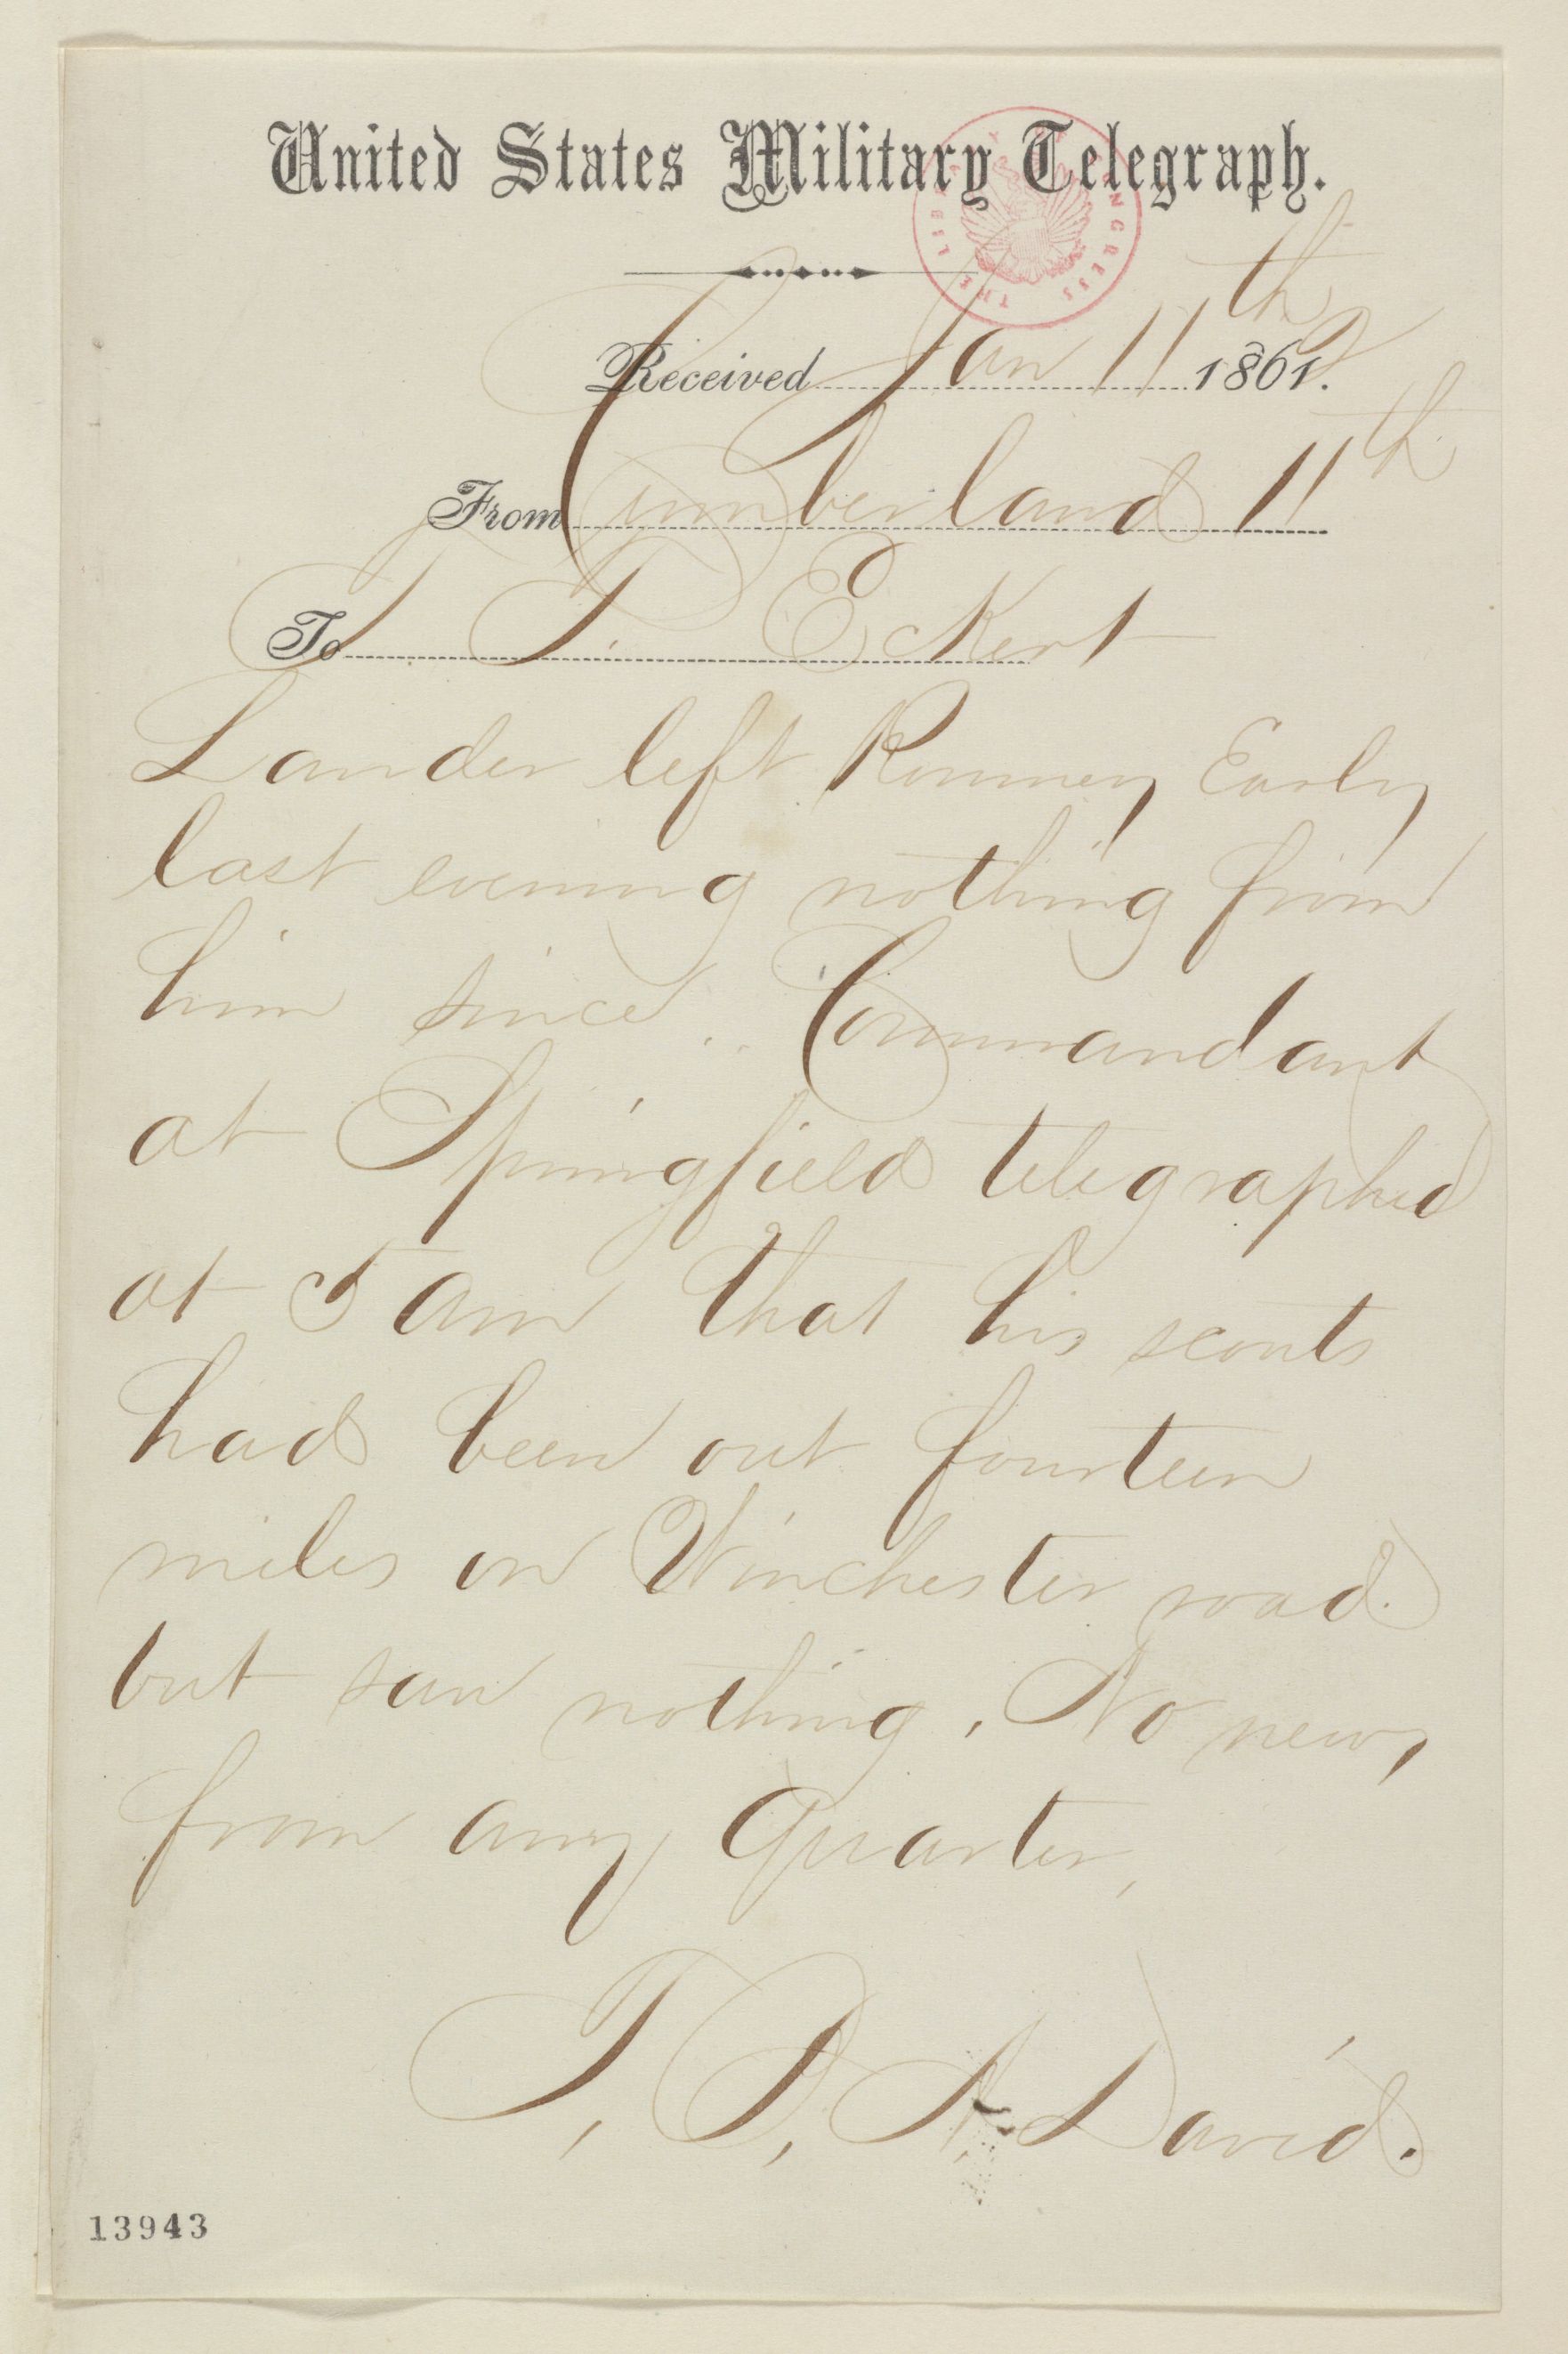 United States Military Telegraph.
THE LIBRARY OF CONGRESS
Received Jan 11th 1862.
From Cumberland 11th
To T. T. Eckert
Lander left Romney Early
last evening nothing from
him since.. Commandant
at Springfield telegraphed
at 5 am that his scouts
had been out fourteen
miles on Winchester road.
but saw nothing. No news
from any quarter,
T, B, A. David.
13943